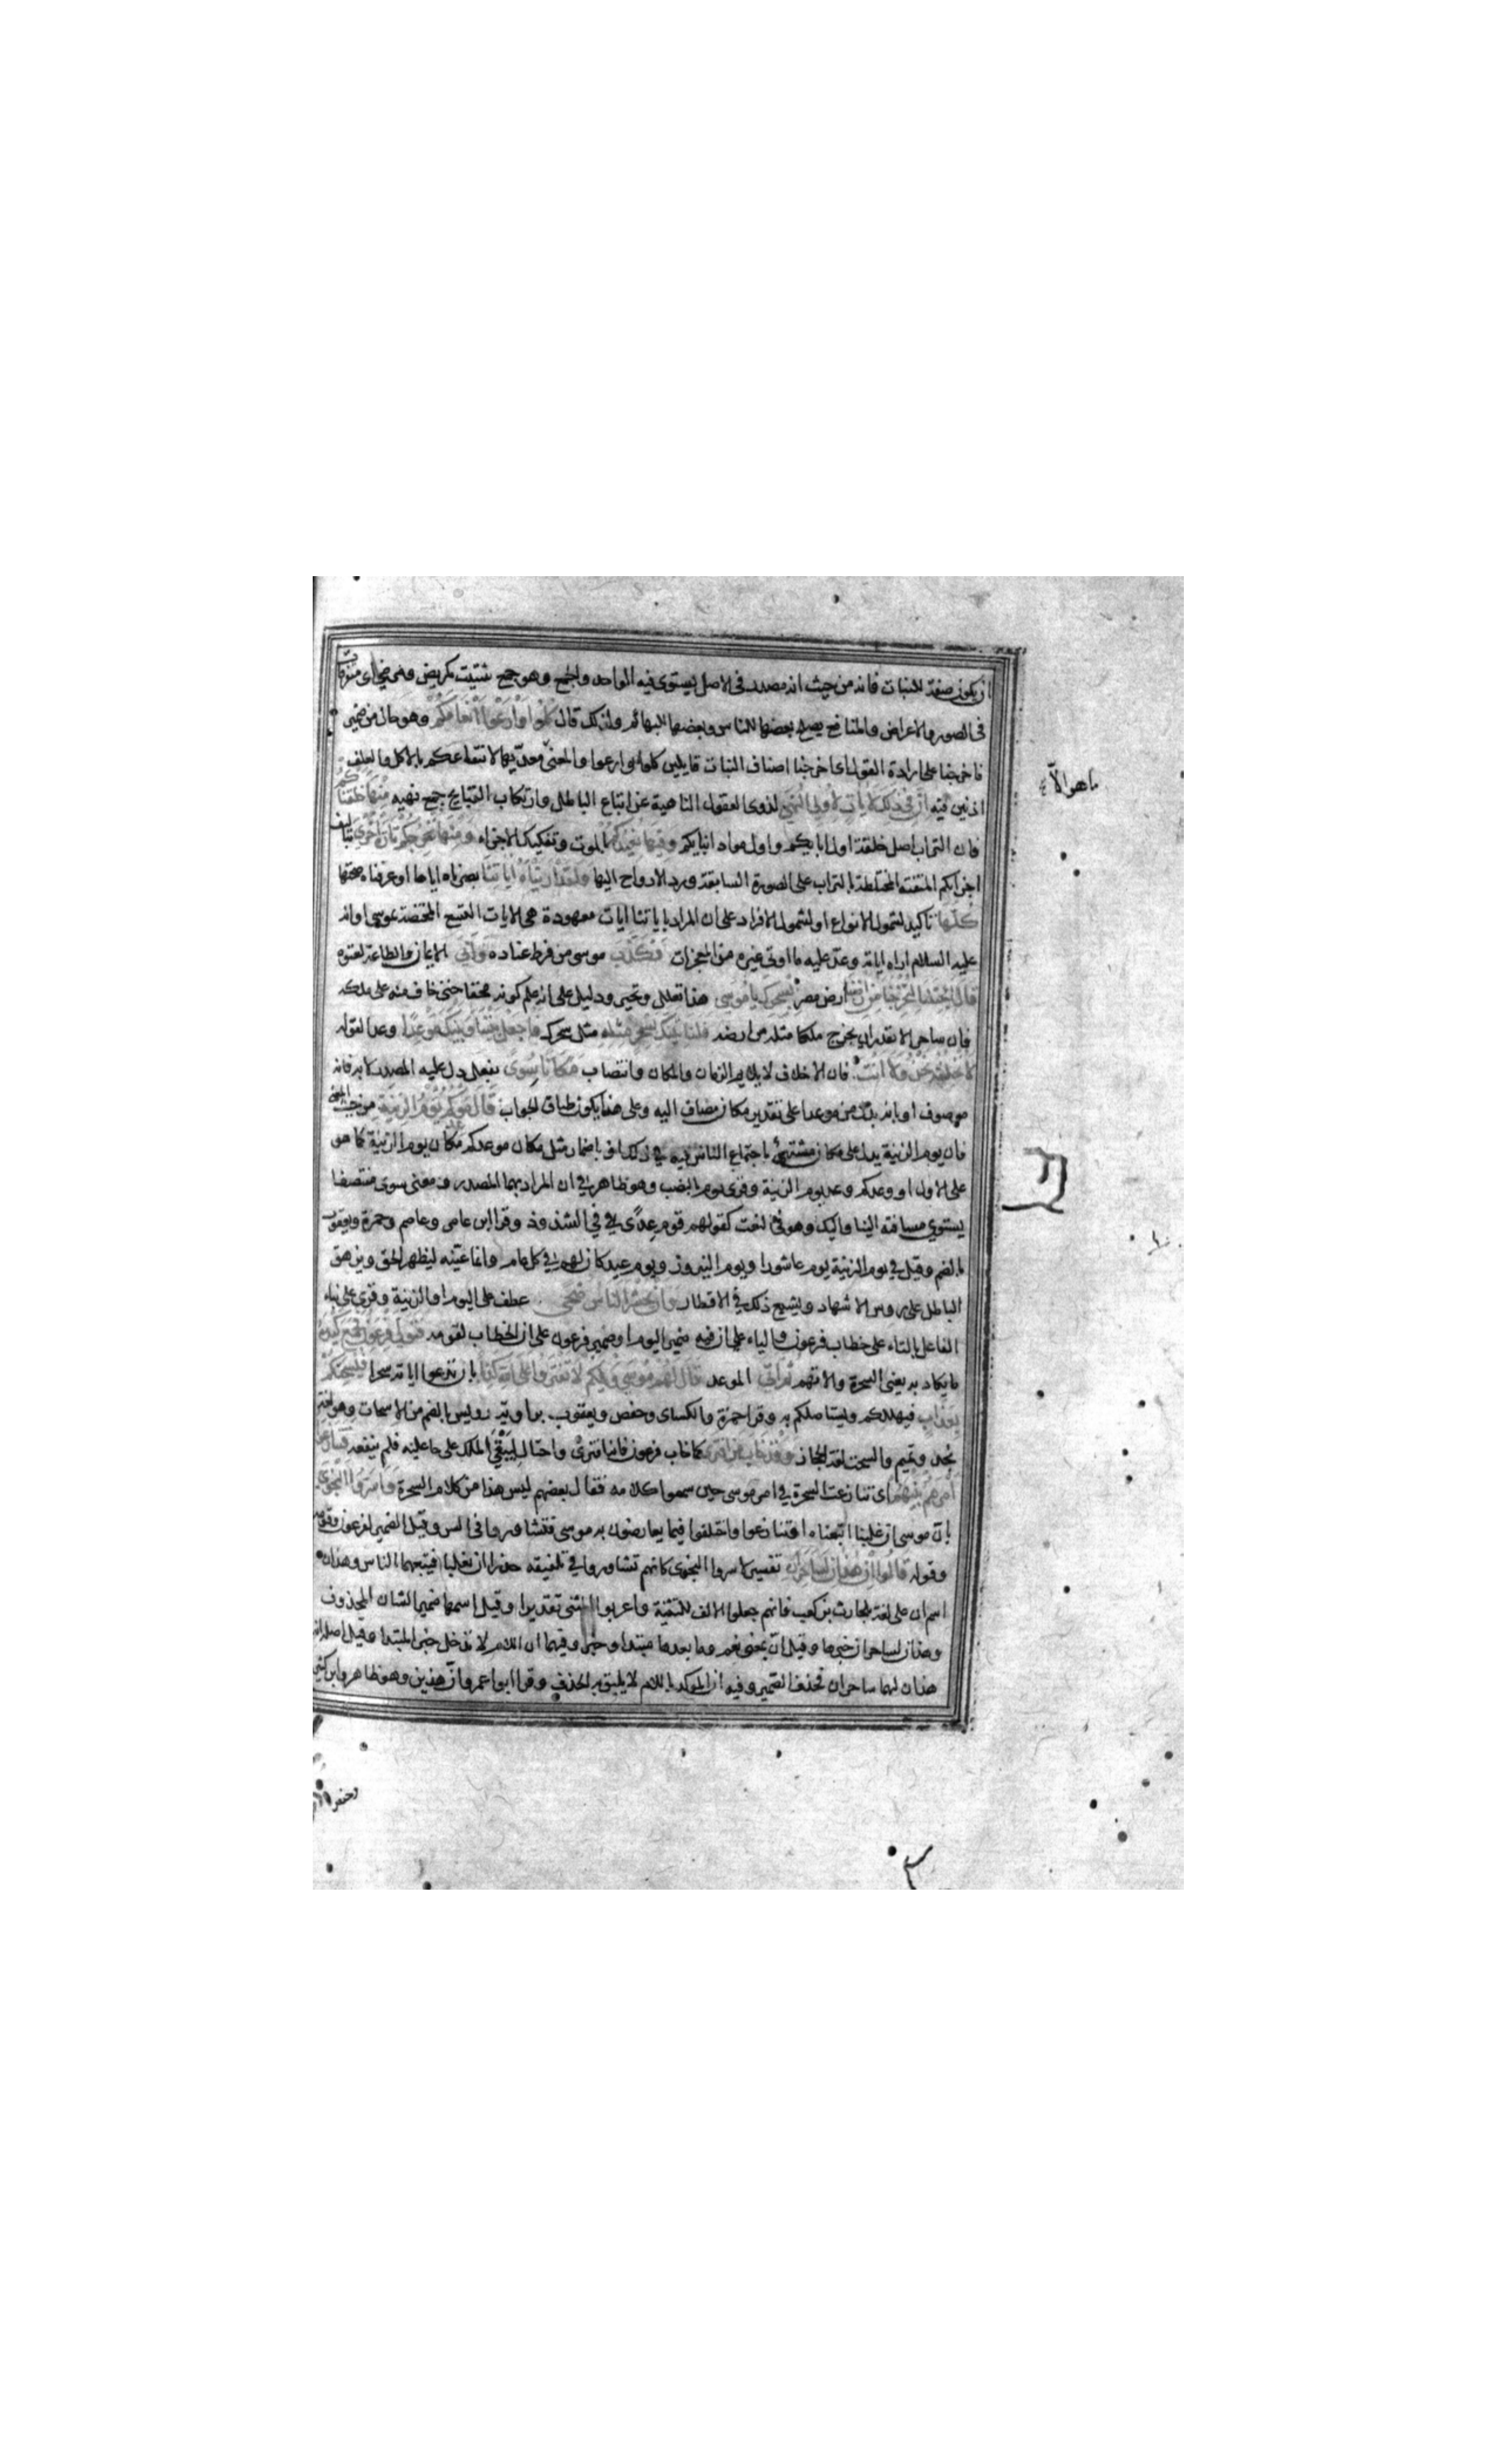 ان يكون صفة للنبات فانه من حيث انه مصدر فى الاصل يستوى فيه الواحد والجمع وهو جمع شتيت كمريض ومرضى اى متفرقات
فى الصور والاعراض والمنافع يصلح بعضها للناس وبعضها للبهائم ولذلك قال كلوا وارعوا انعامكم وهو حال من ضمير
فاخرجنا على ارادة القول اى اخرجنا اصناف النبات قايلين كلوا وارعوا والمعنى معديها لانتفاعكم بالاكل والعلف
اذنين فيه ان فى ذلك لايات لاولى النهى لذوى العقول الناهية عن اتباع الباطل وارتكاب القبايح جمع نهيه منها خلقناكم
فان التراب اصل خلقة اول ابايكم واول مواد ابدانكم وفيها نعيدكم بالموت وتفكيك الاجزاء ومنها نخرجكم تارة اخرى بتاليف
اجزايكم المتفتته المختلطة بالتراب على الصورة السابقة ورد الارواح اليها ولقد اريناه اياتنا بصرناه اياها او عرفناه صحتها
كلها تاكيد لشمول الانواع او لشمول الافراد على ان المراد باياتنا ايات معهودة هى الايات التسع المختصة بموسى او انه
عليه السلام اراه اياته وعد عليه ما اوتى غيره من المعجزات فكذب موسى من فرط عناده وابى الايمان والطاعة لعتوه
قال اجئتنا لتخرجنا من ارضنا ارض مصر بسحرك يا موسى هذا تعلل وتحير ودليل على انه علم كونه محقا حتى خاف منه على ملكه
فان ساحرا لا يقدر ان يخرج ملكا مثله من ارضه فلناتينك بسحر مثله مثل سحرك فاجعل بيننا وبينك موعدا وعدا لقوله
لا نخلفه نحن ولا انت فان الاخلاف لا يلايم الزمان والمكان وانتصاب مكانا سوى بفعل دل عليه المصدر لا به فانه
موصوف او بانه بدل من موعدا على تقدير مكان مضاف اليه وعلى هذا يكون طباق الجواب قال موعدكم يوم الزينة من حيث المعنى
فان يوم الزينة يدل على مكان مشتهر باجتماع الناس فيه فى ذلك او باضمار مثل مكان موعدكم مكان يوم الزينة كما هو
على الاول او وعدكم وعد يوم الزينة وقرى يوم بالنصب وهو ظاهر فى ان المراد بهما المصدر ومعنى سوى منتصفا
يستوى مسافته الينا واليك وهو فى النعت كقولهم قوم عدى فى الشذوذ وقرا ابن عامر وعاصم وحمزة ويعقوب
بالضم وقيل فى يوم الزينة يوم عاشورا ويوم النيروز ويوم عيد كان لهم فى كل عام وانما عينه ليظهر الحق ويزهق
الباطل على روس الاشهاد ويشيع ذلك فى الاقطار وان يحشر الناس ضحى عطف على اليوم او الزينة وقرى على بناء
الفاعل بالتاء على خطاب فرعون والياء على ان فيه ضمير اليوم او ضمير فرعون على ان الخطاب لقومه فتولى فرعون فجمع كيده
ما يكاد به يعنى السحرة والاتهم ثم اتى الموعد قال لهم موسى ويلكم لا تفتروا على الله كذبا بان تدعوا اياته سحرا فيسحتكم
بعذاب فيهلككم ويستاصلكم به وقرا حمزة والكساى وحفص ويعقوب برواية رويس بالضم من الاسحات وهو لغة
نجد وتميم والسحت لغة الحجاز وقد خاب من افترى كما خاب فرعون فانه افترى واحتال ليبقى الملك على ما عليه فلم ينفعه فتنازعوا
امرهم بينهم اى تنازعت السحرة فى امر موسى حين سمعوا كلامه فقال بعضهم ليس هذا من كلام السحرة واسروا النجوى
بان موسى ان غلبنا اتبعناه او تنازعوا واختلفوا فيما يعارضون به موسى فتشاوروا فى السر وقيل الضمير لفرعون وقومه
وقوله قالوا ان هذان لساحران تفسير لاسروا النجوى كانهم تشاوروا فى تلفيقه حذرا ان يغلبا فيتبعهما الناس وهذان
اسم ان على لغة بلحارث بن كعب فانهم جعلوا الالف للتثنية واعربوا المثنى تقديرا وقيل اسمها ضمير الشان المحذوف
وهذان لساحران خبرها وقيل ان بمعنى نعم وما بعدها مبتدا وخبر وفيهما ان اللام لا تدخل خبر المبتدا وقيل اصله انه
هذان لهما ساحران فحذف الضمير وفيه ان الموكد باللام لا يليق به الحذف وقرا ابو عمرو ان هذين وهو ظاهر وابن كثير